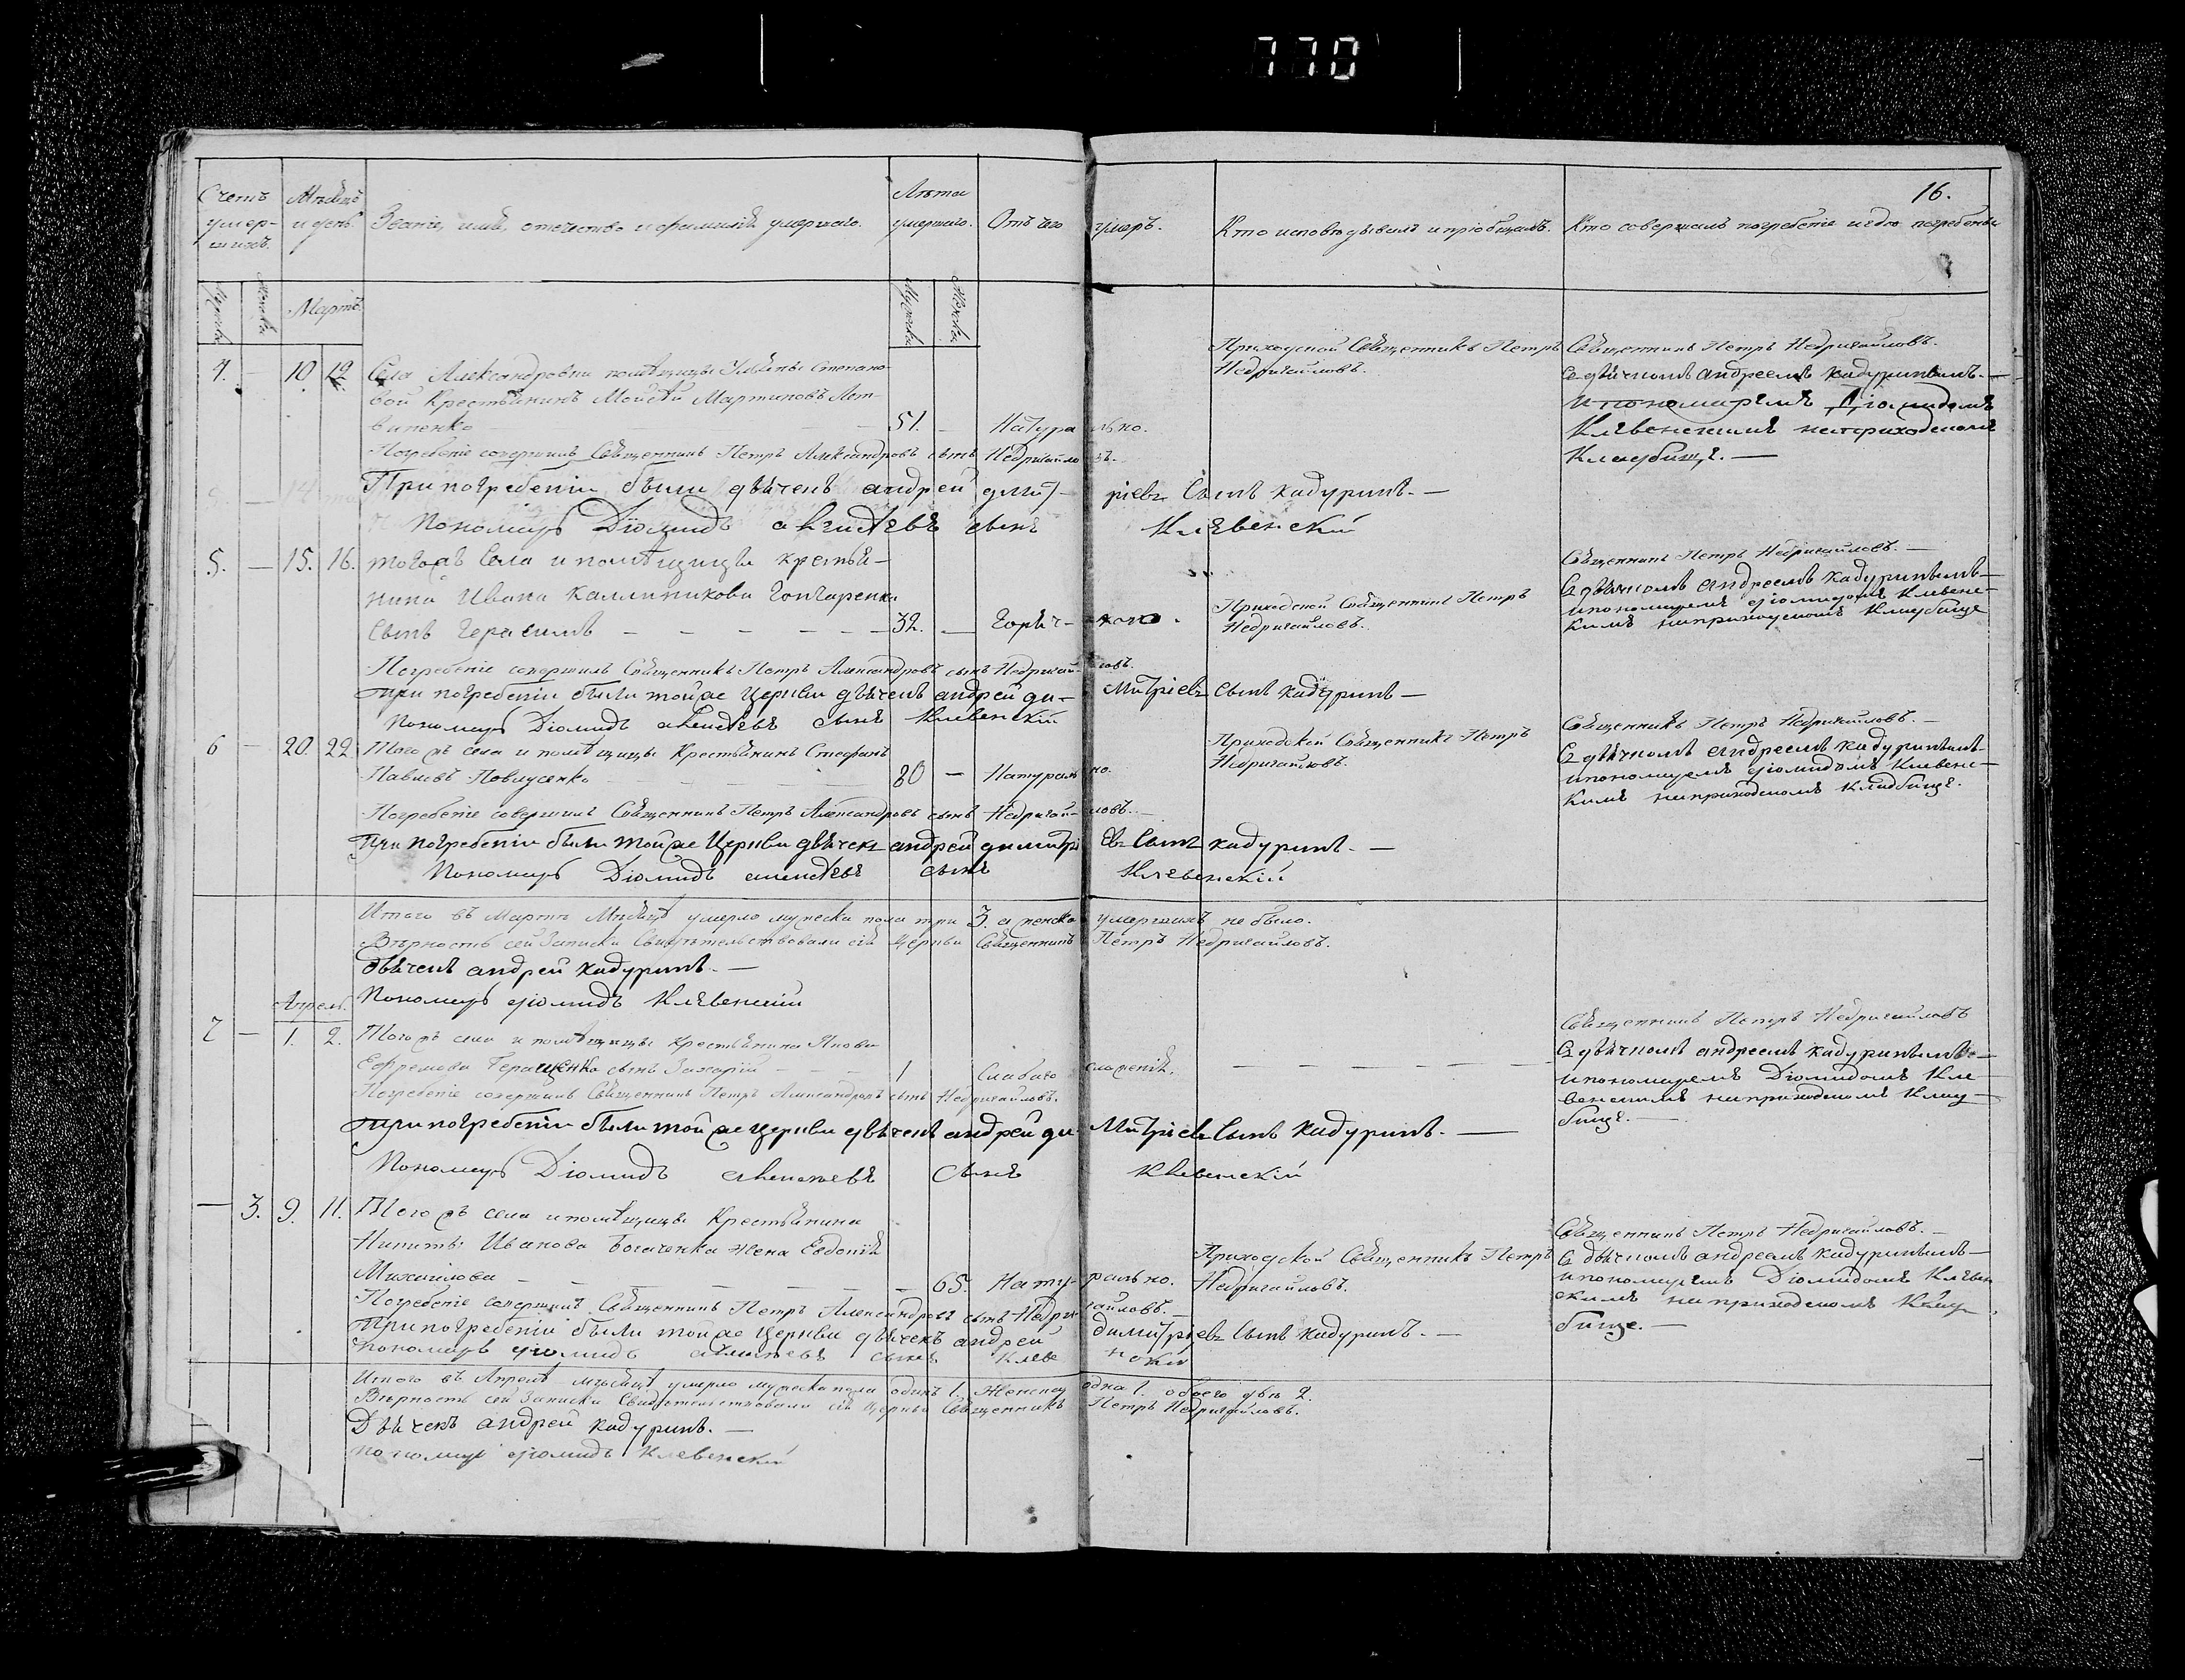 770
16.
Счетъ умер-шихъ.
Мѣсяцъ и день.
Званіе, имя, отечество и фамилія умершаго.
Лѣта умершаго.
Отъ чего умеръ.
Кто исповѣдывалъ и пріобщалъ.
Кто совершалъ погребеніе и гдѣ погребены
Мужска
Женска
Мартъ.
Мужска
Женска
4. — 10. 12. Села Александровки помѣщицы Степано-
вой Крестьянинъ Мойсей Мартиновъ Лит-
виненко — 51. — Натурально.
Приходской Священникъ Петръ
Недригайловъ.
Священникъ Петръ Недригайловъ.
Съ дьячкомъ андреемъ кадуринымъ. —
и пономаремъ Діомидомъ
Клевенскимъ на приходскомъ
Кладбищѣ. —
Погребеніе совершилъ Священникъ Петръ Александровъ сынъ Недригайловъ.
При погребеніи были дьячекъ андрей дмитріевъ Сынъ кадуринъ. —
Пономарь Діомидъ алексѣевъ сынъ Клевенскій
5. — 15. 16. тогожъ Села и помѣщицы крестья-
нина Ивана Каллиникова Гончаренка
Сынъ Герасимъ — — — — 32. — Горячкою.
Приходской Священникъ Петръ
Недригайловъ.
Священникъ Петръ Недригайловъ. —
Съ дьячкомъ андреемъ кадуринымъ —
и пономаремъ діомидомъ Клевенс-
кимъ на приходскомъ Кладбище
Погребеніе совершилъ Священникъ Петръ Александровъ сынъ Недригайловъ.
При погребеніи были той же Церкви дьячекъ андрей димитріевъ сынъ кадуринъ —
Пономарь Діомидъ алексѣевъ сынъ Клевенскій
6 — 20. 22. Тогожъ села и помѣщицы Крестьянинъ Стефанъ
Павловъ Павлусенко 80 — Натурально.
Приходской Священникъ Петръ
Недригайловъ.
Священникъ Петръ Недригайловъ. —
Съ дьячкомъ андреемъ кадуринымъ
и пономаремъ діомидомъ Клевенс-
кимъ на приходскомъ кладбище.
Погребеніе совершилъ Священникъ Петръ Александровъ сынъ Недригайловъ.
При погребеніи были той же Церкви дьячекъ андрей димитріевъ сынъ кадуринъ. —
Пономарь Діомидъ алексѣевъ сынъ Клевенскій
Итого въ Мартѣ Мѣсяцѣ умерло мужеска пола три 3. а женска умершихъ не было.
Вѣрность сей Записки Свидѣтельствовали сей Церкви Священникъ Петръ Недригайловъ.
дьячекъ андрей кадуринъ. —
Пономарь діомидъ Клевенскій
Апрель.
7 — 1. 2. Тогожъ села и помѣщицы Крестьянина Якова
Ефремова Геращенка сынъ Захарій — — — 1 Слабаго сложенія. — — — — — —
Священникъ Петръ Недригайловъ
Съ дьячкомъ андреемъ кадуринымъ —
и пономаремъ Діомидомъ Кле
венскимъ на приходскомъ клад-
бище. —
Погребеніе совершилъ Священникъ Петръ Александровъ сынъ Недригайловъ.
При погребеніи были той же Церкви дьячекъ андрей димитріевъ Сынъ кадуринъ. —
Пономарь Діомидъ алексѣевъ Сынъ Клевенскій
— 3. 9. 11. Тогожъ села и помѣщицы Крестьянина
Никиты Иванова Богаченка жена Евдокія
Михайлова — — — — — 65. Натурально.
Приходской Священникъ Петръ
Недригайловъ.
Священникъ Петръ Недригайловъ. —
Съ дьячкомъ андреемъ кадуринымъ —
и пономаремъ Діомидомъ Клевен
скимъ на приходскомъ Клад
бище. —
Погребеніе совершилъ Священникъ Петръ Александровъ сынъ Недригайловъ. —
При погребеніи были той же Церкви дьячекъ андрей димитріевъ Сынъ кадуринъ. —
пономарь діомидъ алексѣевъ сынъ Клевенскій
Итого въ Апрелѣ мѣсяцѣ умерло мужеска пола одинъ 1. Женска одна 1. обоего два 2.
Вѣрность сей Записки Свидѣтельствовали сей Церкви Священникъ Петръ Недригайловъ.
Дьячекъ андрей кадуринъ. —
пономарь діомидъ Клевенскій